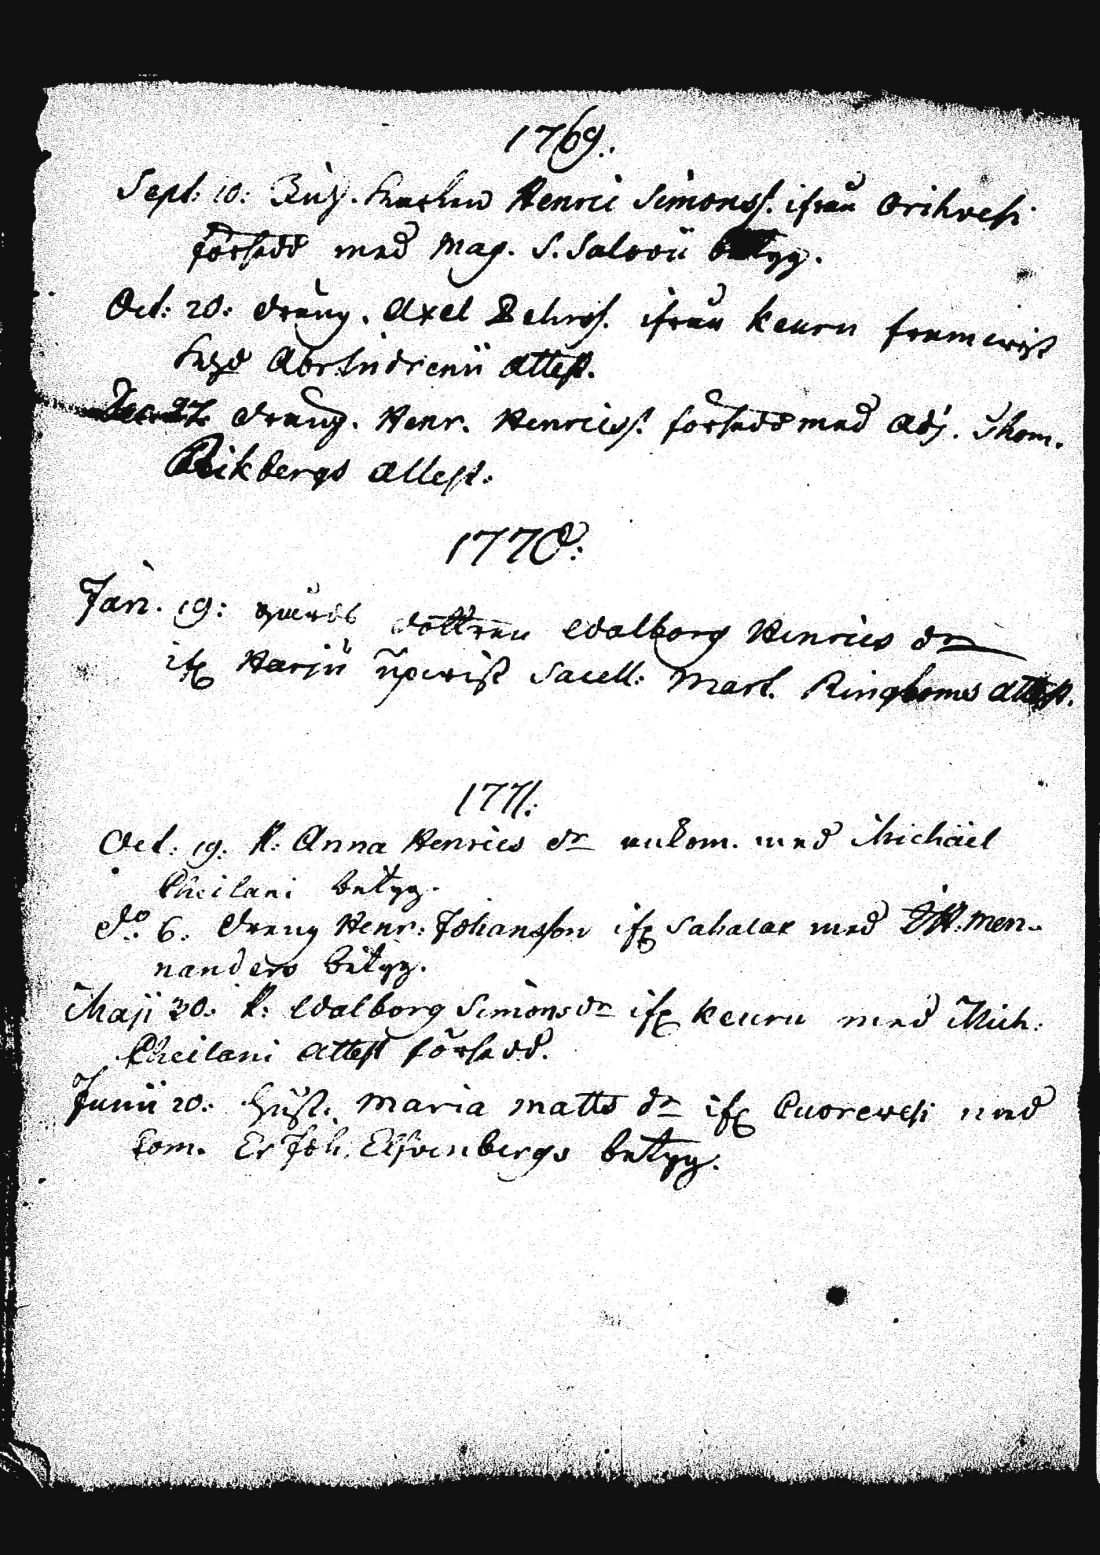 1769.
Sept: 10: Henric Simonss. ifrån Orihvesi
försedd med Mag. S. Salovii betyg.
Oct: 20: dräng. Axel ifrån Keuru framwist
attest.
Dec. 27. dräng. Henr. Henricss. försedd med Adj. Thom.
Rikbergs attest.
1770:
Jan. 19: dottren Walborg Henrics dr
ifr Harju upwist Sacell: Mart. Ringboms attest.
1771:
Oct. 19. P. Anna Henrics dr ankom. med Michaël
Pheilani betyg.
do. 6. dräng Henr: Johansson ifr Sahalax med Men-
nanders betyg.
Maji 30. P: Walborg Simons dr ifr Keuru med Mich:
Pheilani attest försedd.
Junii 20: Hust. Maria Matts dr ifr Puorewesi med
Com. Er Joh. Elfvenbergs betyg.